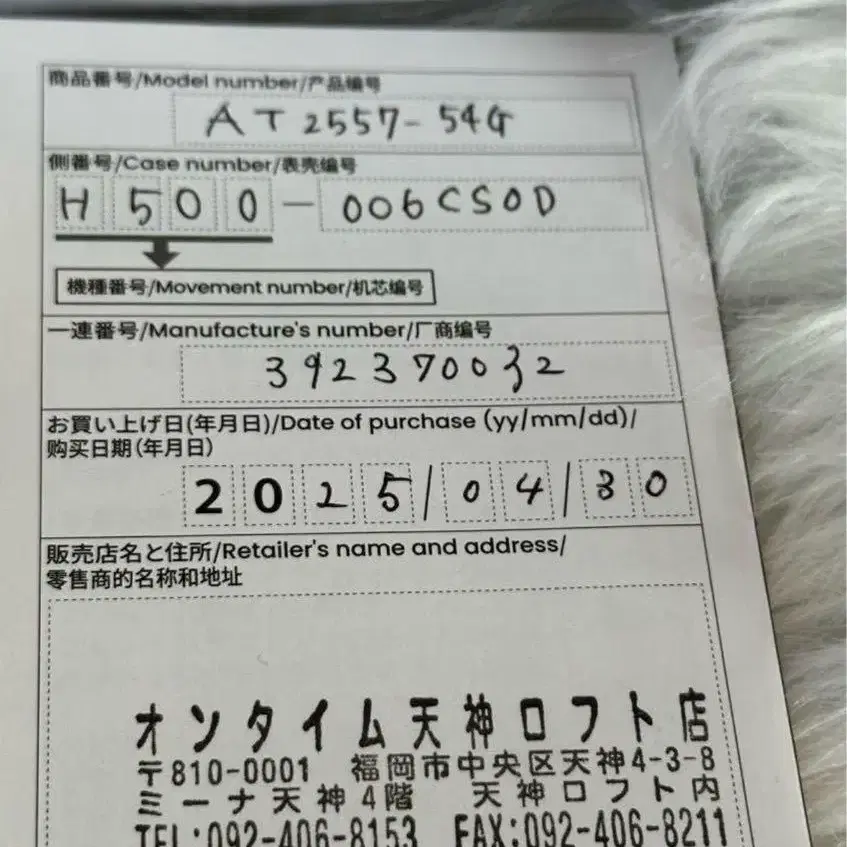 商品番号/Model number/产品编号
AT2557-54G
側番号/Case number/表壳编号
H500-006CSOD
機種番号/Movement number/机芯编号
一連番号/Manufacture's number/厂商编号
392370032
お買い上げ日(年月日)/Date of purchase (yy/mm/dd)/
购买日期(年月日)
2025/04/30
販売店名と住所/Retailer's name and address/
零售商的名称和地址
オンタイム天神ロフト店
〒810-0001 福岡市中央区天神4-3-8
ミーナ天神4階 天神ロフト内
TEL:092-406-8153 FAX:092-406-8211